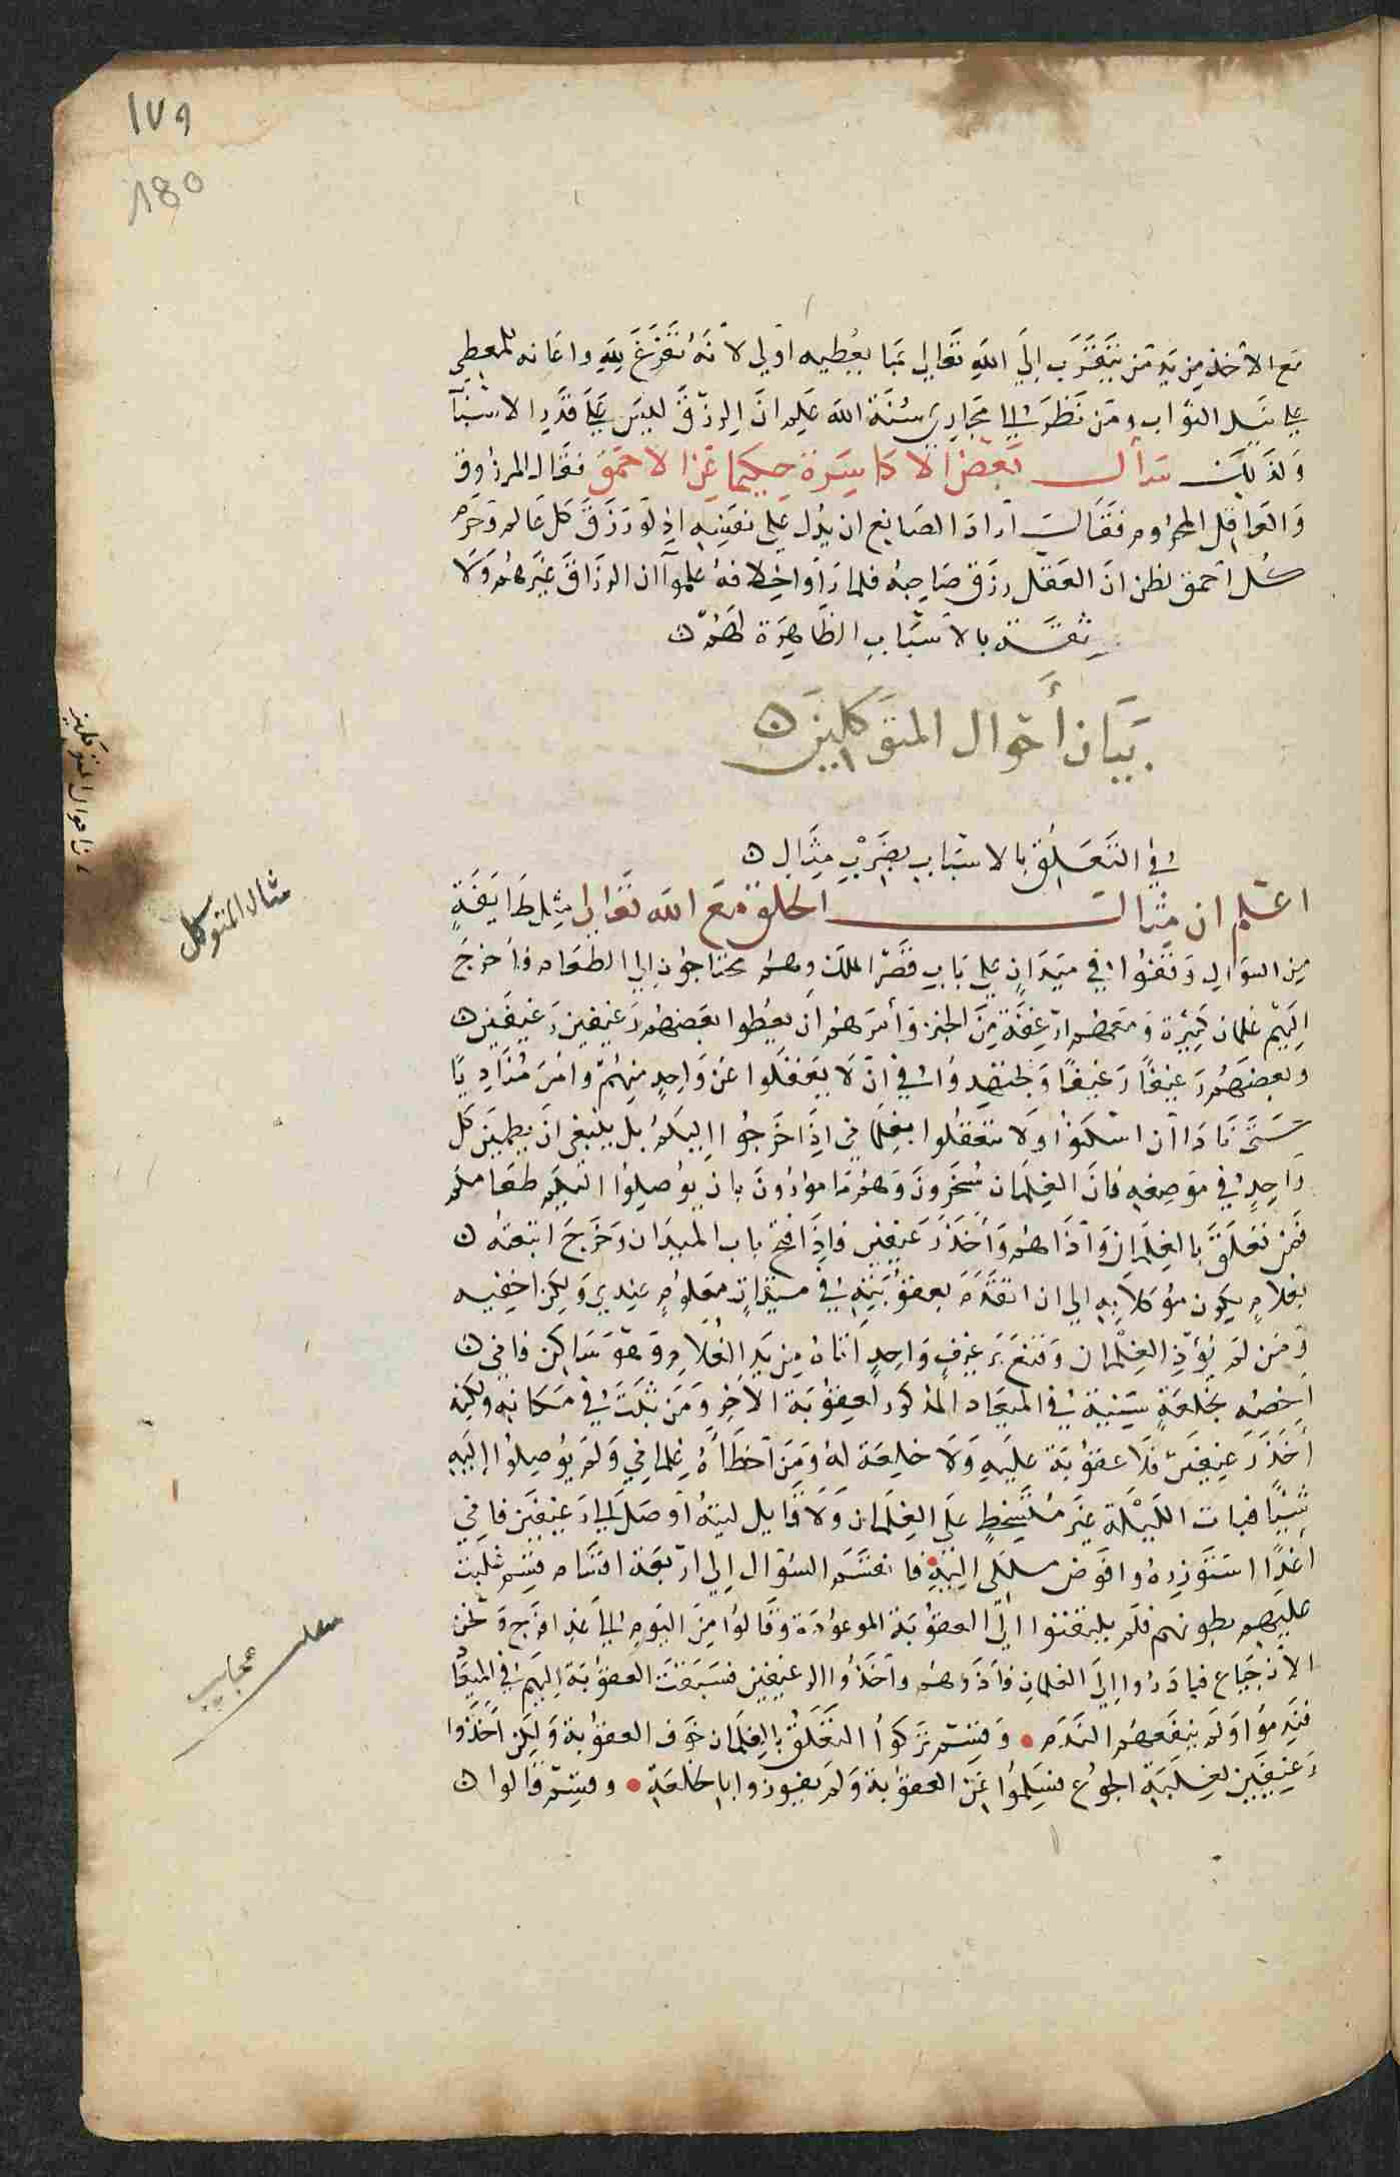 ١٧٩
180
مع الاخذ من يد من يتقرب الي الله تعالي بما يعطيه اولي لانه تفرغ لله واعانه للمعطي
علي نيل الثواب ومن نظر الي مجاري سنة الله علم ان الرزق ليس علي قدر الاسباب
ولذلك سأل بعض الاكاسرة حكيما عن الاحمق فقال المرزوق
والعاقل المحروم فقال اراد الصانع ان يدل علي نفسه اذ لو رزق كل عالم وحرم
كل احمق لظن ان العقل رزق صاحبه فلما راوا خلافه علموا ان الرزاق غيرهم ولا
ثقة بالاسباب الظاهرة لهم
بيان أحوال المتوكلين
في التعلق بالاسباب بضرب مثال
اعلم ان مثال الخلق مع الله تعالي مثل طايفة
من السوال وقفوا في ميدان علي باب قصر الملك وهم محتاجون الي الطعام فاخرج
اليهم غلمان كثيرة ومعهم ارغفة من الخبز وأمرهم ان يعطوا بعضهم رغيفين رغيفين
وبعضهم رغيفا رغيفا ويجتهدوا في ان لا يغفلوا عن واحد منهم وامر مناديا
حتي نادا ان اسكنوا ولا تتعلقوا بغلماني اذا خرجوا اليكم بل ينبغي ان يطمين كل
واحد في موضعه فان الغلمان مسخرون وهم مامورون بان يوصلوا اليكم طعامكم
فمن تعلق بالغلمان وآذاهم وأخذ رغيفين فاذا فتح باب الميدان وخرج اتبعته
بغلام يكون موكلا به الي ان اتقدم بعقوبته في ميقات معلوم عندي ولكن اخفيه
ومن لم يؤذ الغلمان وقنع برغيف واحد اتاه من يد الغلام وهو ساكن فاني
اخصه بخلعة سنية في الميعاد المذكور لعقوبة الاخر ومن ثبت في مكانه ولكنه
أخذ رغيفين فلا عقوبة عليه ولا خلعة له ومن أخطأه غلماني ولم يوصلوا إليه
شيئا فبات الليلة غير متسخط علي الغلمان ولا قايل ليته أوصل الي رغيفين فاني
اغدا استوزره وافوض ملكي اليه فانقسم السوال الي اربعة اقسام قسم غلبت
عليهم بطونهم فلم يلتفتوا الي العقوبة الموعودة وقالوا من اليوم الي غد افرج ونحن
الان جياع فبادروا الي الغلمان فآذوهم وأخذوا الرغيفين فسبقت العقوبة اليهم في الميعاد
فندموا ولم ينفعهم الندم • وقسم تركوا التعلق بالغلمان خوف العقوبة ولكن اخذوا
رغيفين لغلبة الجوع فسلموا عن العقوبة ولم يفوزوا بالخلعة • وقسم قالوا
مثال المتوكل